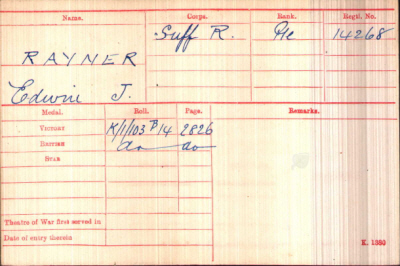 Name. Corps. Rank. Regtl. No.
RAYNER Suff R. Pte 14268
Edwin J.
Medal. Roll. Page. Remarks.
VICTORY K/1/103 B14 2826
BRITISH do do
STAR
Theatre of War first served in
Date of entry therein
K. 1380